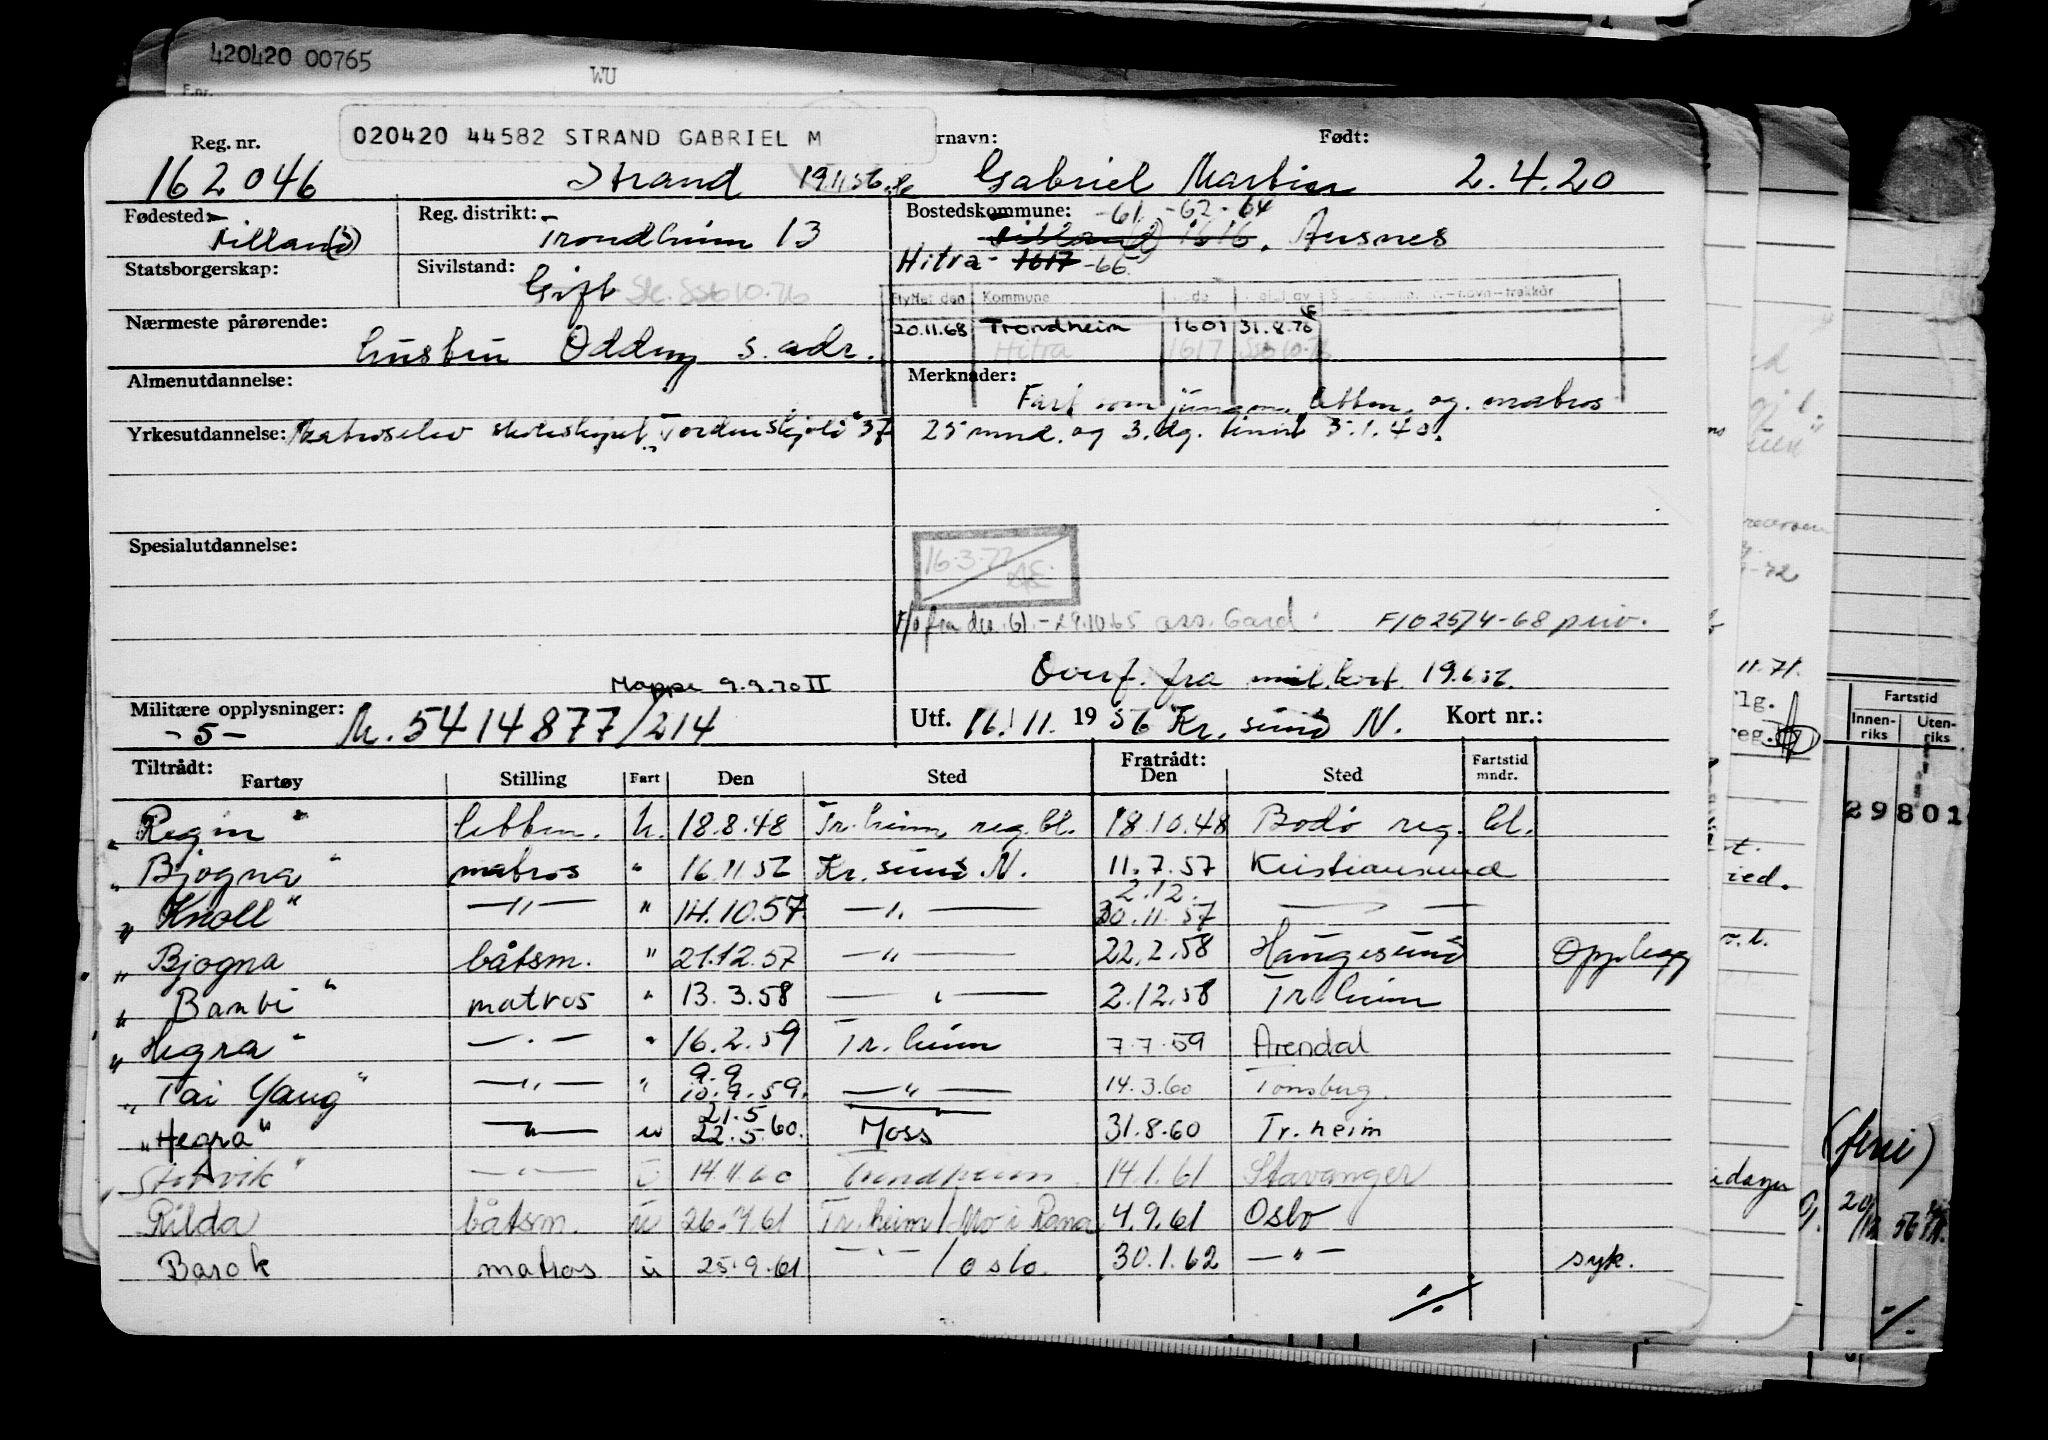 420420 00765
WU
F.nr.
Reg. nr. 020420 44582 STRAND GABRIEL M rnavn: Født:
162046 Strand 19.11.56 Gabriel Martin 2.4.20
Fødested: Reg. distrikt: Bostedskommune: -61 -62 -64
Trondheim 13 1616, Ausnes
Hitra - 1617 -66
Statsborgerskap: Sivilstand:
Gift Ssb 10.76
Flyttet den Kommune
20.11.68 Trondheim 1601 31.8.76
Hitra 1617 Ssb 10.76
Nærmeste pårørende:
hustru Oddny s. adr.
Almenutdannelse: Merknader:
Fart som jungm. lettm. og matros
Yrkesutdannelse: Matroselev skoleskipet "Tordenskjold" 37 25 mnd. og 3. dg. innt 5.1.40.
Spesialutdannelse:
16.3.72
F/o fra des. 61. - 29.10.65 ass. Gard F/O 25/4-68 priv.
Overf. fra mil.kort 19.6.52.
Mappe 9.9.70 II
Militære opplysninger: M. 5414877/214
-5-
Utf. 16/11 1956 Kr. sund N. Kort nr.:
Tiltrådt: Fratrådt: Fartstid
Fartøy Stilling Fart Den Sted Den Sted mndr.
"Regin" lettm. u. 18.8.48 Tr.heim reg. bl. 18.10.48 Bodø reg. bl.
"Bjogna" matros " 16.11.56 Kr. sund N. 11.7.57 Kristiansund
2.12.
"Knoll" —"— " 14.10.57 —"— 30.11.57 —"—
"Bjogna båtsm. " 21.12.57 —"— 22.2.58 Haugesund Opplegg
"Bambi" matros " 13.3.58 —"— 2.12.58 Tr.heim
"Hegra" —"— " 16.2.59 Tr.heim 7.7.59 Arendal
9.9
"Tai Yang" —"— " 10.9.59. —"— 14.3.60 Tønsberg.
21.5
"Hegra" —"— u 22.5.60. Moss 31.8.60 Tr.heim
"Storvik" —"— u 14.11.60 Trondheim 14.1.61 Stavanger
Rilda båtsm. u 26.4.61 Tr.heim / Mo i Rana 4.9.61 Oslo
Barok matros u 25.9.61 —"— / Oslo. 30.1.62 —"— syk.
·/.
11.71.
Fartstid
Innenriks Utenriks
29801
(ferie)
·/.